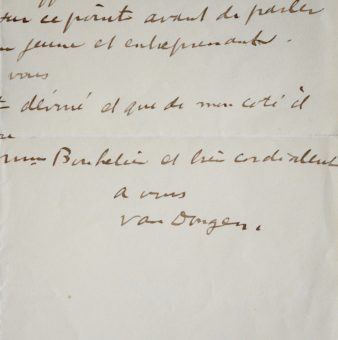 sur ce point avant de parler
jeune et entreprenant.
vous
déviné et que de mon coté il
Bouhelier et bien cordialement
a vous
Van Dongen.